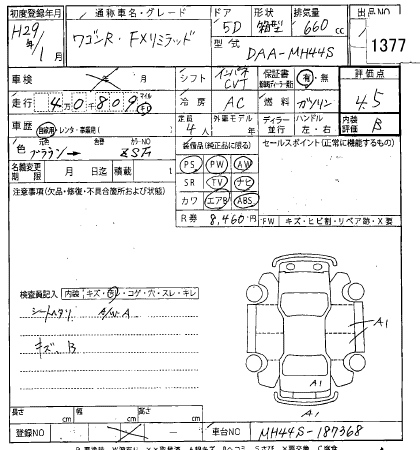 初度登録年月 通称車名・グレード ドア 形状 排気量 出品NO
H29年/1月 ワゴンR・FXリミテッド 5D 箱型 660cc 1377
型式 DAA-MH44S
車検 年 月 シフト インパネCVT 保証書 有・無 評価点
走行 4万0809 マイル km 冷房 AC 燃料 ガソリン 4.5
車歴 自家用・レンタ・事業用( ) 定員 4人 外車モデル ディーラー 並行 ハンドル 左・右 内装評価 B
色 元色 ブラウン→ 色替 カラーNO ZSH
装備品(純正品に限る) セールスポイント(正常に機能するもの)
名義変更期限 月 日迄 積載 t
PS PW AW
注意事項(欠品・修復・不具合箇所および状態)
SR TV ナビ
カワ エアB ABS
R券 8,460円
FW キズ・ヒビ割・リペア跡・X要
検査員記入 内装 キズ・キレ・コゲ・穴・スレ・キレ
シートヘタリ A/W A
キズ、B
A1
A1
A1
長さ cm 幅 cm 高さ cm
登録NO 車台NO MH44S-187368